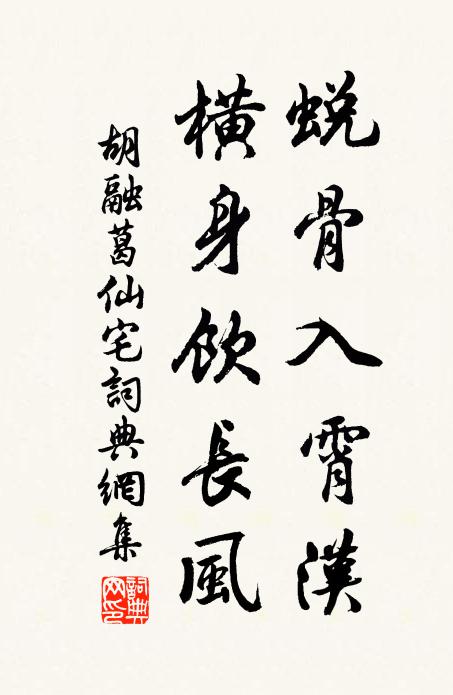 蜕骨入霄漢
横身飲長風
胡融葛仙宅詞典網集
詞典網印